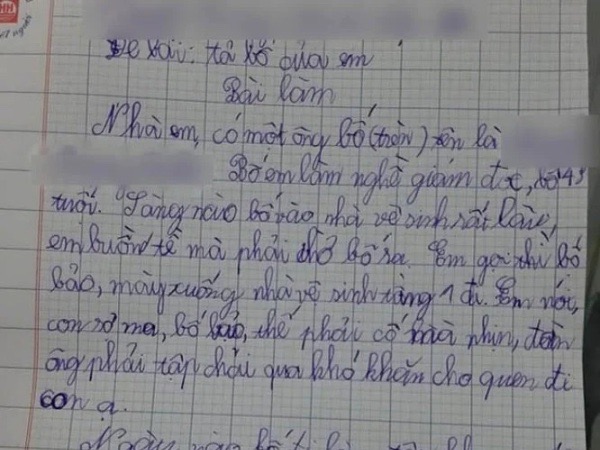 Đề bài: tả bố của em
Bài làm
Nhà em, có một ông bố (trên) tên là
Bố em làm nghề giám đốc, bố 43
tuổi. Sáng nào bố vào nhà vệ sinh rất lâu,
em buồn tè mà phải chờ bố ra. Em gọi thì bố
bảo, mày xuống nhà vệ sinh tầng 1 đi. Em nói,
con sợ ma, bố bảo, thế phải cố mà nhịn, đàn
ông phải tập trải qua khó khăn cho quen đi
con ạ.